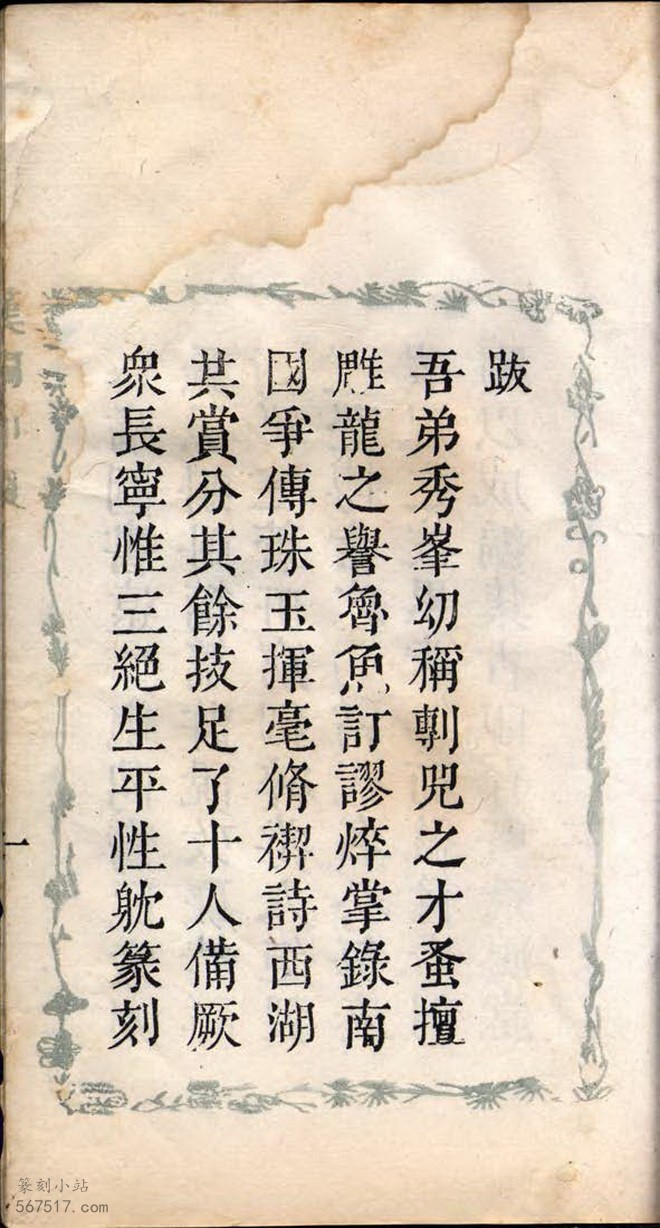 跋
吾弟秀峯幼稱剸兕之才蚤擅
雕龍之譽魯魚訂謬焠掌錄南
國爭傳珠玉揮毫脩禊詩西湖
共賞分其餘技足了十人備厥
衆長寧惟三絕生平性躭篆刻
一
篆刻小站
567517.com